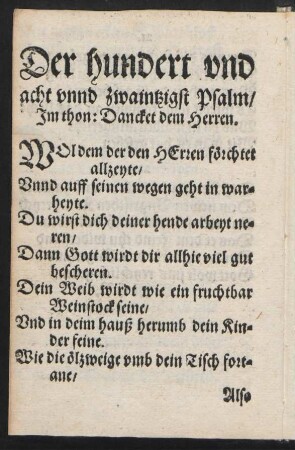 Der hundert vnd
acht vnnd zwaintzigst Psalm/
Im thon: Dancket dem Herren.
WOl dem der den HErren förchtet
allzeyte/
Vnnd auff seinen wegen geht in war-
heyte.
Du wirst dich deiner hende arbeyt ne-
ren/
Dann Gott wirdt dir allhie viel gut
bescheren.
Dein Weib wirdt wie ein fruchtbar
Weinstock seine/
Vnd in deim hauß herumb dein Kin-
der feine.
Wie die ölzweige vmb dein Tisch fort-
ane/
Also